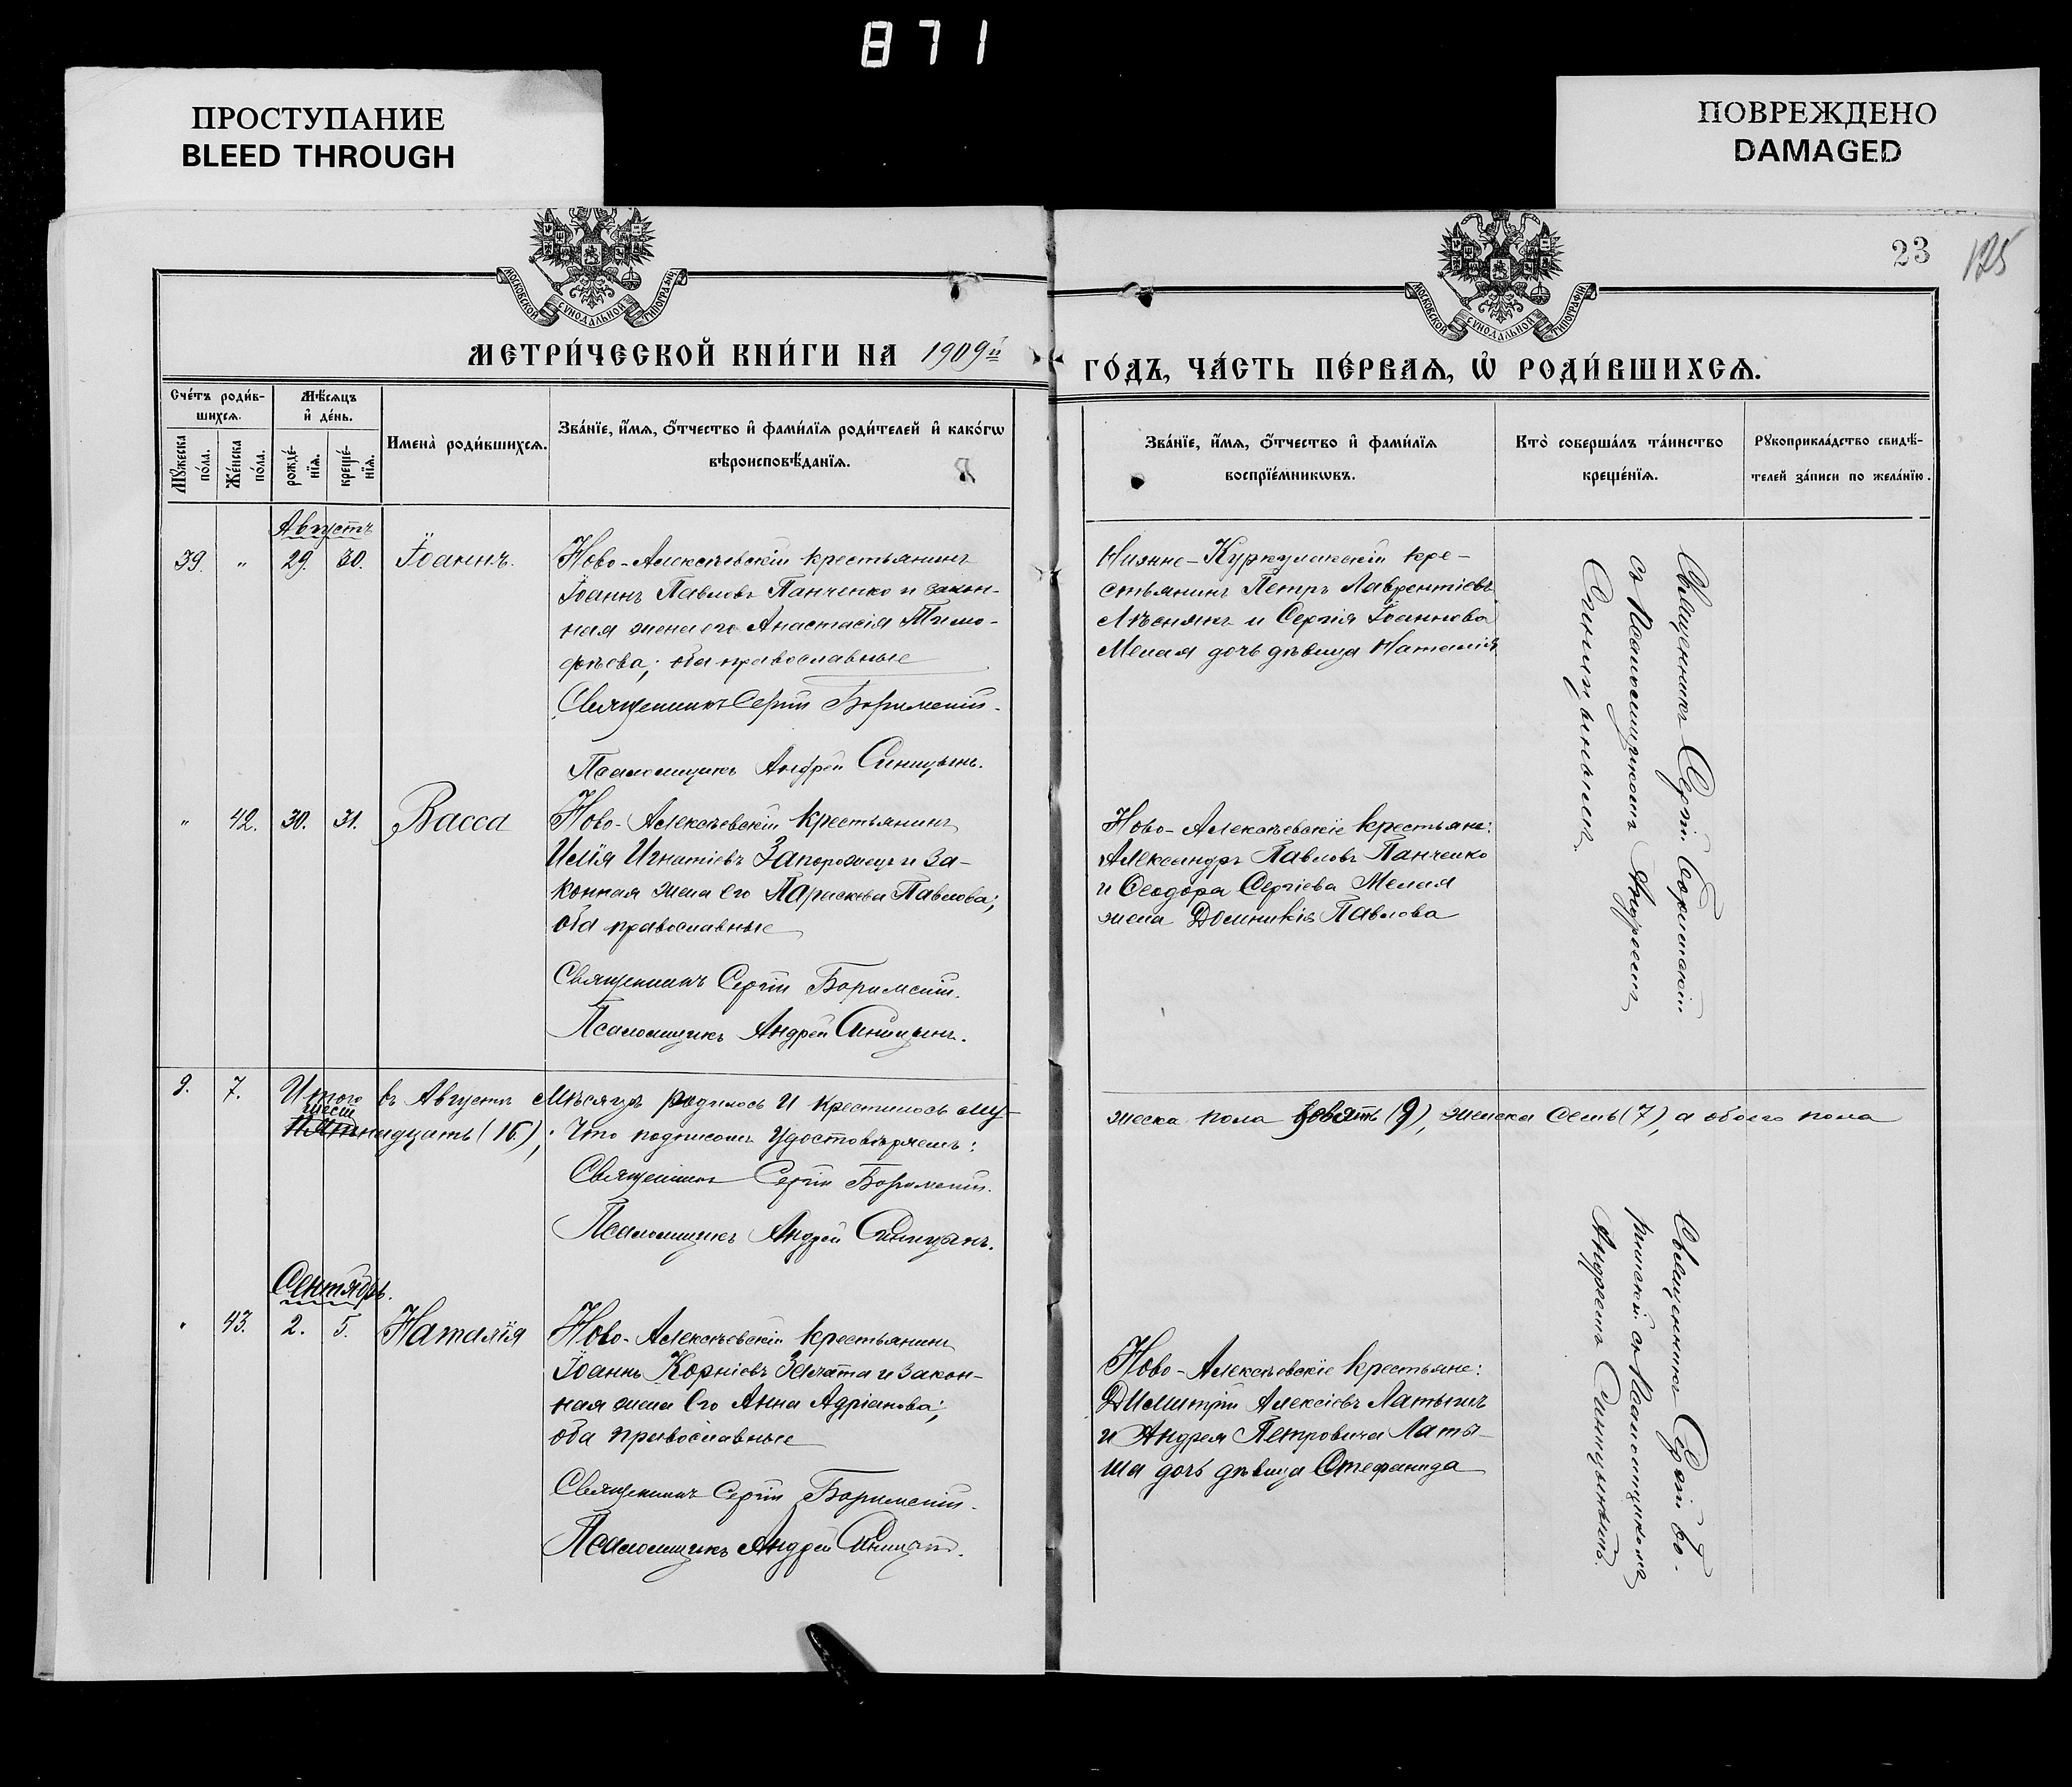 871
ПРОСТУПАНИЕ
BLEED THROUGH
ПОВРЕЖДЕНО
DAMAGED
МОСКОВСКОЙ СѴНОДАЛЬНОЙ ТИПОГРАФІИ
МОСКОВСКОЙ СѴНОДАЛЬНОЙ ТИПОГРАФІИ
23
125
МЕТРИ́ЧЕСКОЙ КНИ́ГИ НА 1909й
ГО́ДЪ, ЧА́СТЬ ПЕ́РВАѦ, Ѡ҆ РОДИ́ВШИХСѦ.
Сче́тъ роди́в-
шихсѧ.
Мѣ́сѧцъ
и҆ де́нь.
Мꙋ́жеска
по́ла.
Же́нска
по́ла.
рожде́-
нїѧ.
креще́-
нїѧ.
Имена̀ роди́вшихсѧ.
Зва́нїе, и҆́мѧ, ѻ҆́тчество и҆ фами́лїѧ роди́телей и҆ како́гѡ
вѣроисповѣ́данїѧ.
Зва́нїе, и҆́мѧ, ѻ҆́тчество и҆ фами́лїѧ
воспрїе́мникѡвъ.
Кто̀ соверша́лъ та́инство
креще́нїѧ.
Рꙋкоприкла́дство свидѣ́-
телей за́писи по жела́нїю.
Августъ
39. " 29. 30. Іоаннъ.
Ново-Алексѣевскій крестьянинъ
Іоаннъ Павловъ Панченко и закон-
ная жена его Анастасія Тимо-
фѣева; оба православные
Священникъ Сергій
Псаломщикъ Андрей Синицынъ.
Куркулакскій кре-
стьянинъ Петръ Лаврентіевъ
Лѣснякъ и Сергія Іоаннова
Мелая дочь дѣвица Наталія
Священникъ Сергій
съ Псаломщикомъ Андреемъ
Синицынымъ.
" 42. 30. 31. Васса
Ново-Алексѣевскій крестьянинъ
Илія Игнатіевъ Запорожецъ и за-
конная жена его Параскева Павлова;
оба православные
Священникъ Сергій
Псаломщикъ Андрей Синицынъ.
Ново-Алексѣевскіе крестьяне:
Александръ Павловъ Панченко
и Ѳеодора Сергіева Мелая
жена Домникія Павлова
9. 7. Итого въ Августѣ мѣсяцѣ родилось и крестилось му-
жеска пола девять (9), женска семь (7), а обоего пола
шестнадцать (16), что подписомъ удостовѣряемъ:
Священникъ Сергій
Псаломщикъ Андрей Синицынъ.
Сентябрь.
" 43. 2. 5. Наталія
Ново-Алексѣевскій крестьянинъ
Іоаннъ Корніевъ и закон-
ная жена его Анна Адріанова;
оба православные
Священникъ Сергій
Псаломщикъ Андрей Синицынъ.
Ново-Алексѣевскіе крестьяне:
Димитрій Алексіевъ Латышъ
и Андрея Петровича Латы-
ша дочь дѣвица Стефанида
Священникъ Сергій Бо-
съ Псаломщикомъ
Андреемъ Синицынымъ.